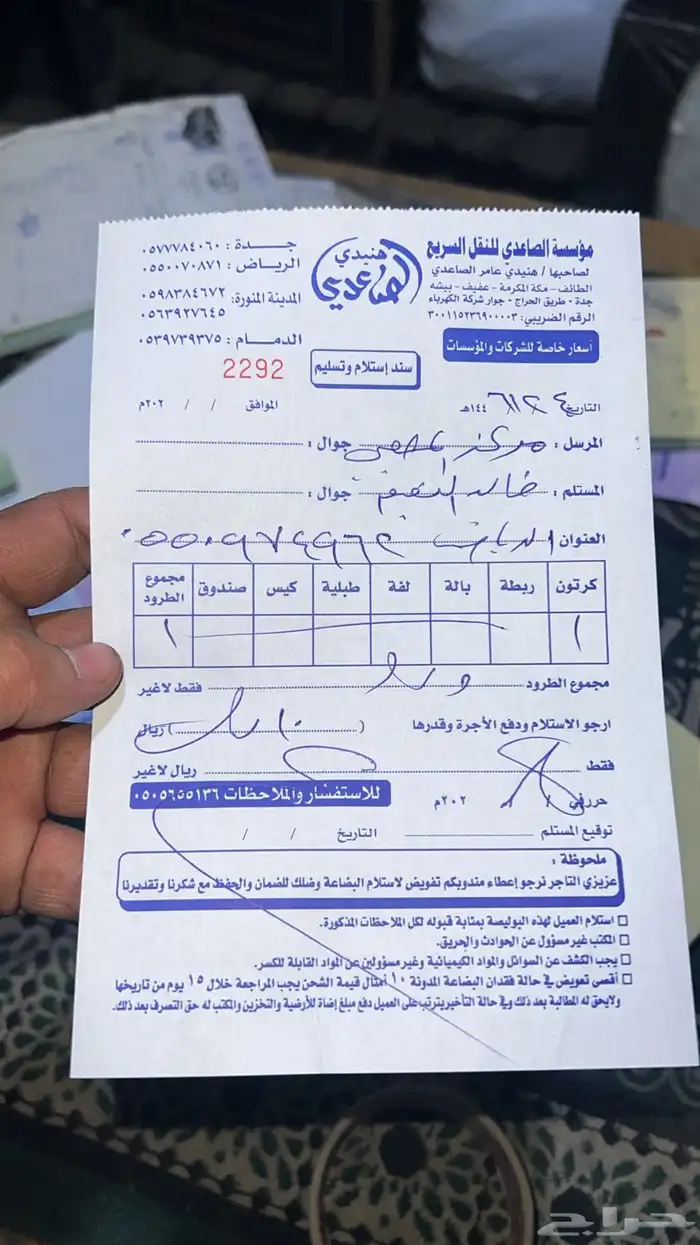 مؤسسة الصاعدي للنقل السريع
لصاحبها / هنيدي عامر الصاعدي
الطائف - مكة المكرمة - عفيف - بيشه
جدة - طريق الحراج - جوار شركة الكهرباء
الرقم الضريبي: ٣٠٠١١٥٢٣٦٩٠٠٠٠٣
أسعار خاصة للشركات والمؤسسات
هنيدي
الصاعدي
جـــدة : ٠٥٧٧٧٨٤٠٦٠
الرياض : ٠٥٥٠٠٧٠٨٧١
المدينة المنورة: ٠٥٩٨٣٨٤٦٧٢
٠٥٦٣٩٢٧٦٤٥
الدمام : ٠٥٣٩٧٣٩٣٧٥
سند إستلام وتسليم
2292
التاريخ ١٤٤هـ الموافق / / ٢٠٢م
المرسل : مركز جوال :
المستلم : خالد جوال :
العنوان الرياض ٠٥٥٠٩٧٤٩٦٢
كرتون ربطة بالة لفة طبلية كيس صندوق مجموع الطرود
١ ١
مجموع الطرود فقط لاغير
ارجو الاستلام ودفع الأجرة وقدرها ( ) ريال
فقط ريال لاغير
حرر في / / ٢٠٢م للاستفسار والملاحظات ٠٥٠٥٦٥٥١٣٦
توقيع المستلم التاريخ / /
ملحوظة :
عزيزي التاجر نرجو إعطاء مندوبكم تفويض لاستلام البضاعة وضلك للضمان والحفظ مع شكرنا وتقديرنا
استلام العميل لهذه البوليصة بمثابة قبوله لكل الملاحظات المذكورة.
المكتب غير مسؤول عن الحوادث والحريق.
يجب الكشف عن السوائل والمواد الكيميائية وغير مسؤولين عن المواد القابلة للكسر.
أقصى تعويض في حالة فقدان البضاعة المدونة ١٠ أمثال قيمة الشحن يجب المراجعة خلال ١٥ يوم من تاريخها
ولايحق له المطالبة بعد ذلك وفي حالة التأخير يترتب على العميل دفع مبلغ إضافة للأرضية والتخزين والمكتب له حق التصرف بعد ذلك.
حراج